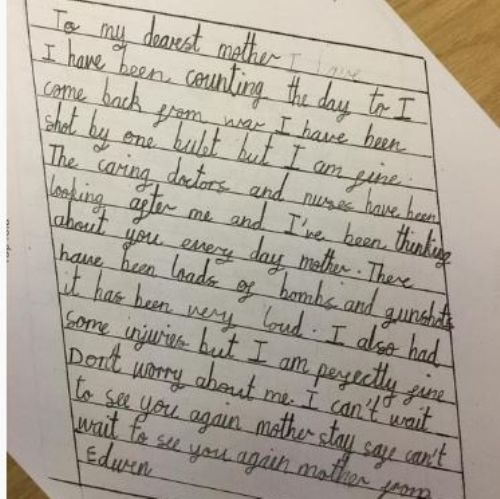 To my dearest mother I have
I have been counting the day to I
come back from war I have been
shot by one bulet but I am fine.
The caring doctors and nurses have been
looking after me and I've been thinking
about you every day mother. There
have been loads of bombs and gunshots
it has been very loud. I also had
some injuries but I am perfectly fine
Don't worry about me. I can't wait
to see you again mother stay safe can't
wait to see you again mother from
Edwen